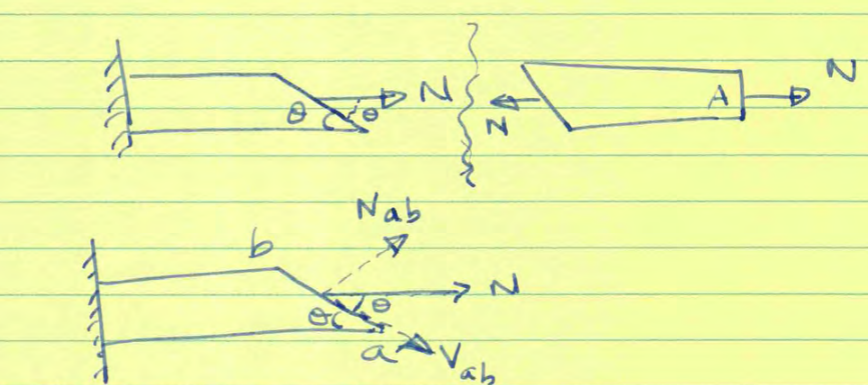 θ θ N
N A N
N_ab
b
θ θ N
a V_ab